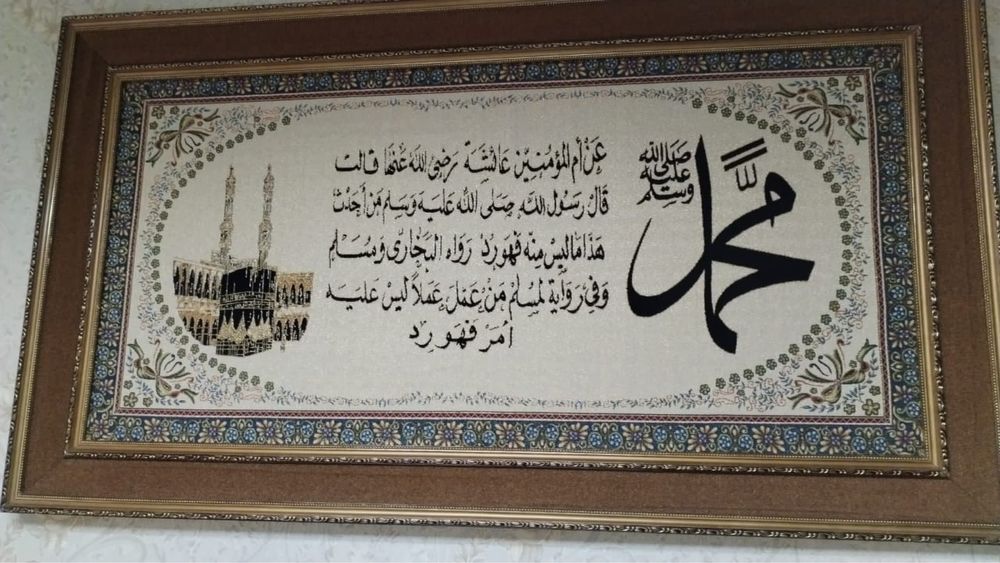 محمد
صلى الله
عليه
وسلم
عن أم المؤمنين عائشة رضي الله عنها قالت
قال رسول الله صلى الله عليه وسلم من أحدث
هذا ما ليس منه فهو رد رواه البخاري ومسلم
وفي رواية لمسلم من عمل عملاً ليس عليه
أمر فهو رد